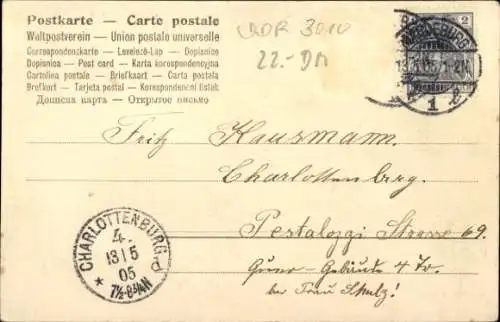 Postkarte — Carte postale
Weltpostverein — Union postale universelle
Correspondenzkarte — Levelező-Lap — Dopisnice
Dopisnica — Post card — Karta korespondencyjna
Cartolina postale — Briefkaart — Carta postala
Brefkort — Tarjeta postal — Korespondenčni listek
Дописна карта — Открытое письмо
3010
22.-DM
2
MAGDEBURG
1
Fritz Hausmann.
Charlottenberg.
Pestalozzi Strasse 69.
Gebäude 4 Tr.
bei Frau Schulz!
CHARLOTTENBURG
4.
13 | 5
05
7½-8¾N